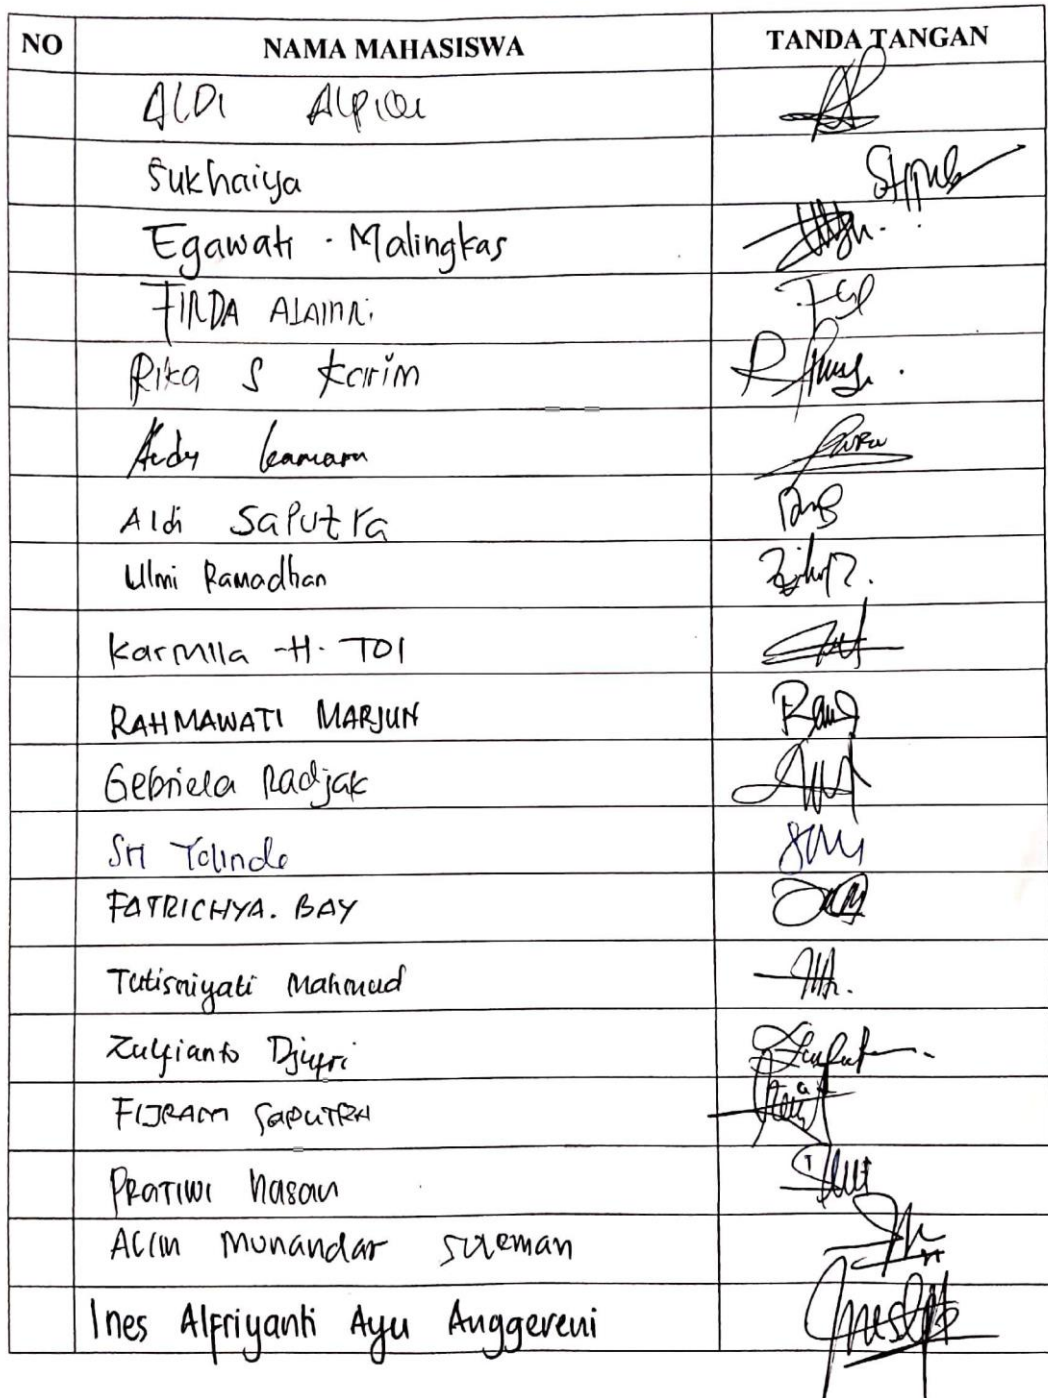 NO NAMA MAHASISWA TANDA TANGAN
ALDI
Sukhaiya
Egawati . Malingkas
FIRDA
Rika S Karim
Kamaru
Aldi Saputra
Ulmi Ramadhan
Karmila H. TOI
RAHMAWATI MARJUN
Gebriela Radjak
Sri Tolinde
FATRICHYA. BAY
Tutisniyati Mahmud
Zulfianto Djufri
FIJRAM SAPUTRA
PRATIWI Hasan
Munandar
Ines Alfriyanti Ayu Anggereni